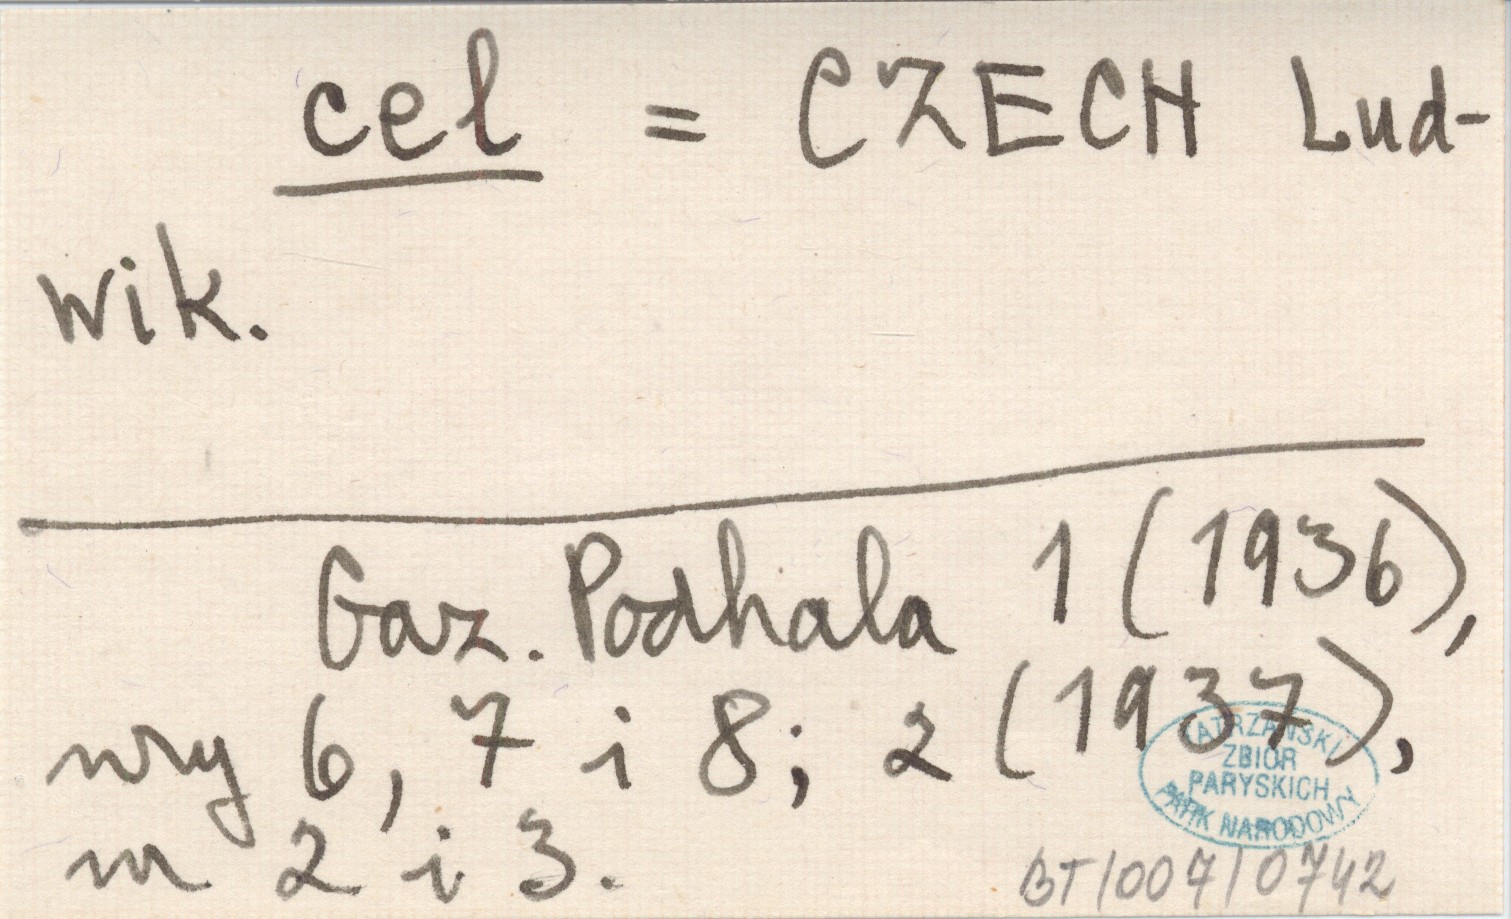 cel = CZECH Lud-
wik.
Gaz. Podhala 1 (1936),
nry 6, 7 i 8; 2 (1937),
nr 2 i 3.
TATRZAŃSKI
ZBIÓR
PARYSKICH
PARK NARODOWY
BT/007/0742